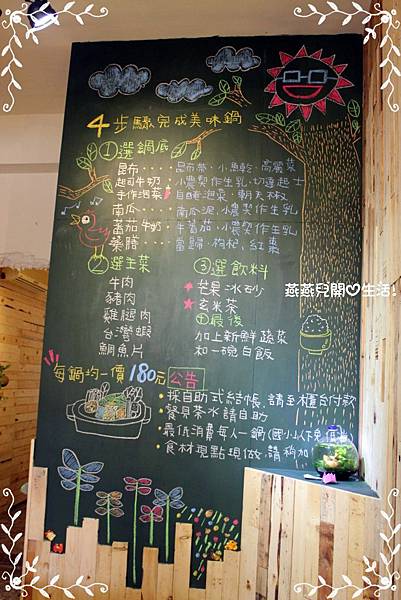 4步驟完成美味鍋
①選鍋底
昆布····昆布茶、小魚乾、高麗菜
起司牛奶·小農契作生乳、切達起士
手作泡菜·自醃泡菜、朝天椒
南瓜····南瓜泥、小農契作生乳
蕃茄牛奶·牛蕃茄、小農契作生乳
藥膳····當歸、枸杞、紅棗
②選主菜
牛肉
豬肉
雞腿肉
台灣蝦
鯛魚片
③選飲料
芒果冰砂
玄米茶
④最後
加上新鮮蔬菜
和一碗白飯
燕燕兒開♡生活!
每鍋均一價180元
公告
·採自助式結帳,請至櫃台付款
·餐具茶水請自助
·最低消費每人一鍋(國小以下免
·食材現點現做,請稍